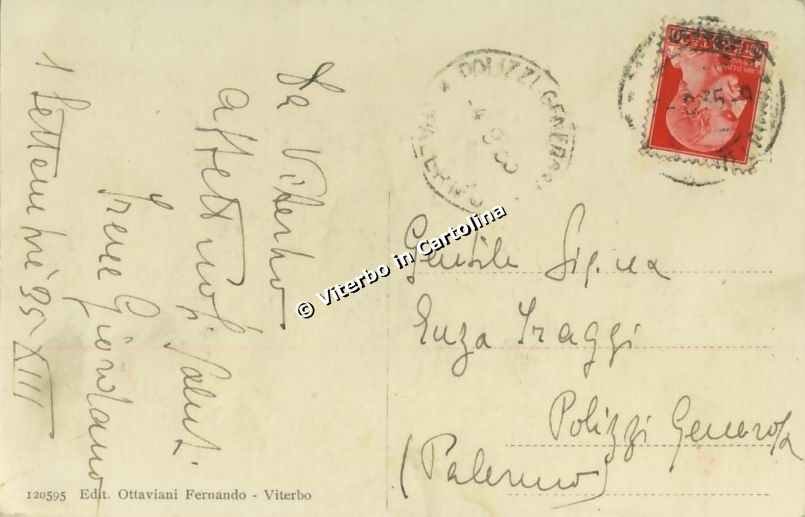 Da Viterbo
affettuosi saluti.
Irene Giordano
1 Settembre 35-XIII
POLIZZI GENEROSA
PALERMO
Gentile Sig.na
Enza Iraggi
Polizzi Generosa
(Palermo)
© Viterbo in Cartolina
120595 Edit. Ottaviani Fernando - Viterbo